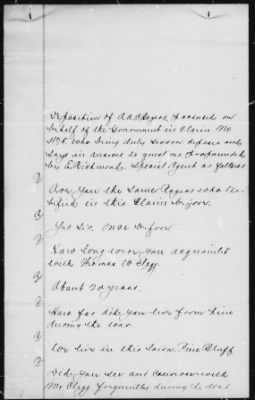 Deposition of A A C Rogers, produced on
behalf of the Government in Claim No
who being duly sworn deposes and
says in answer to questions propounded
by E Richmond, Special Agent as follows
Q Are you the same Rogers who tes-
tified in this Claim before
Yes Sir, once before
Q How long were you acquainted
with Thomas W Clegg
About 20 years.
Q How far did you live from him
during the war
We live in this town Pine Bluff
Q Did you see and converse with
Mr Clegg frequently during the war